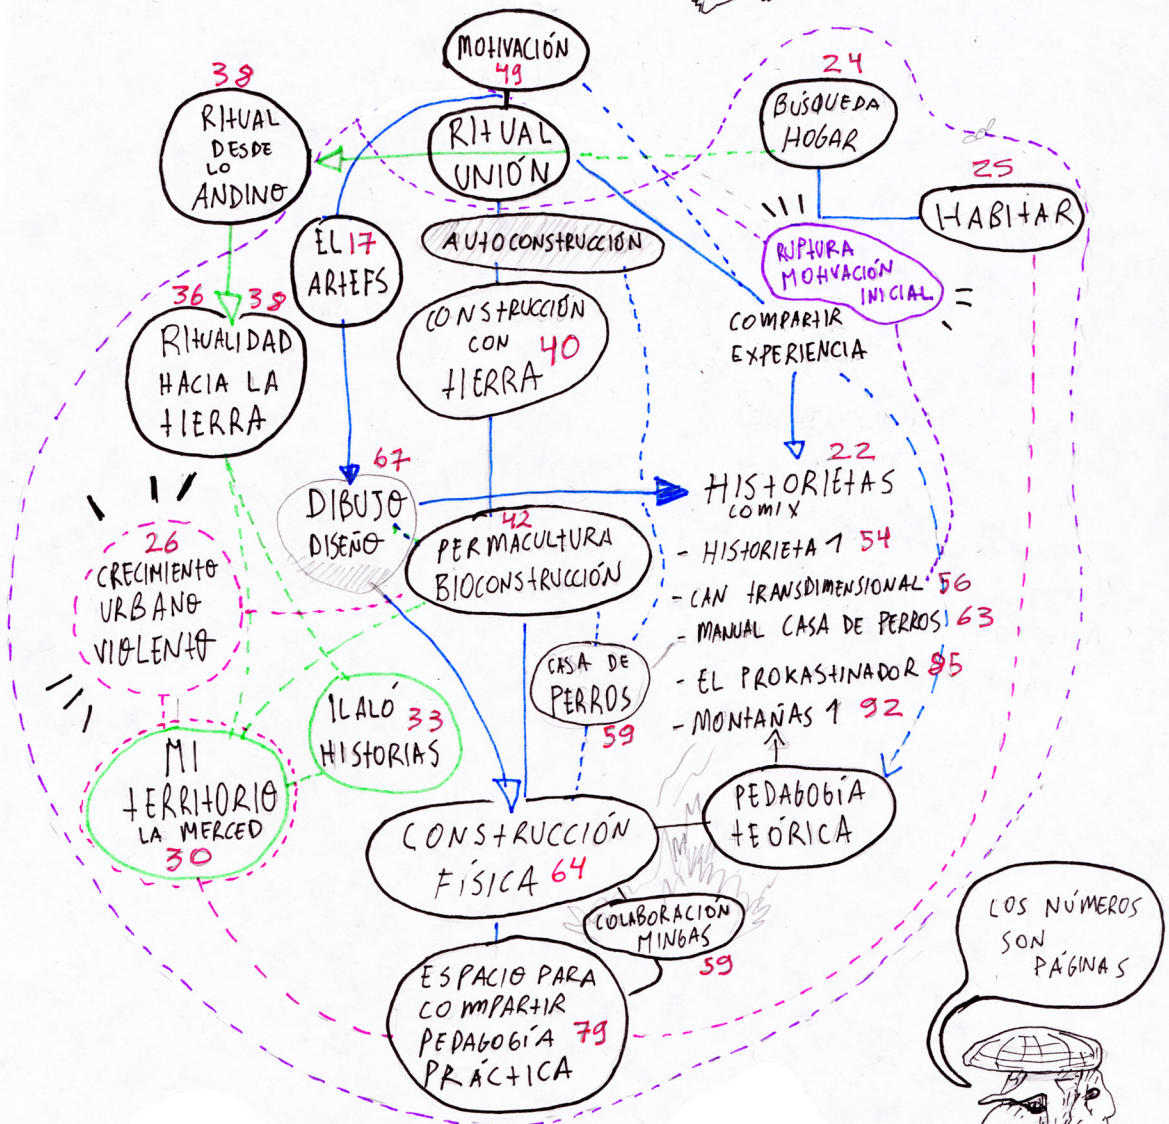 MOTIVACIÓN
49
RITUAL
UNIÓN
38
RITUAL
DESDE
LO
ANDINO
24
BÚSQUEDA
HOGAR
25
HABITAR
EL 17
ARTEFS
AUTOCONSTRUCCIÓN
RUPTURA
MOTIVACIÓN
INICIAL
36 38
RITUALIDAD
HACIA LA
TIERRA
CONSTRUCCIÓN
CON
TIERRA 40
COMPARTIR
EXPERIENCIA
67
DIBUJO
DISEÑO
22
HISTORIETAS
COMIX
- HISTORIETA 1 54
- CAN TRANSDIMENSIONAL 56
- MANUAL CASA DE PERROS 63
- EL PROKASTINADOR 85
- MONTAÑAS 1 92
42
PERMACULTURA
BIOCONSTRUCCIÓN
26
CRECIMIENTO
URBANO
VIOLENTO
CASA DE
PERROS
59
ILALÓ 33
HISTORIAS
MI
TERRITORIO
LA MERCED
30
CONSTRUCCIÓN
FÍSICA 64
PEDAGOGÍA
TEÓRICA
COLABORACIÓN
MINGAS
59
ESPACIO PARA
COMPARTIR
PEDAGOGÍA 79
PRÁCTICA
LOS NÚMEROS
SON
PÁGINAS